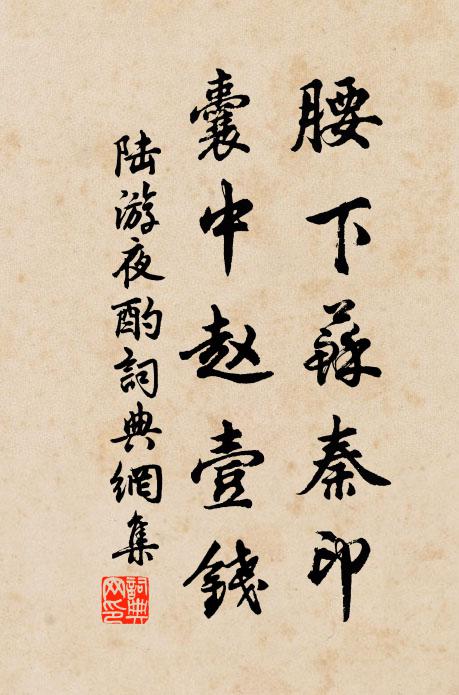 腰下蘇秦印
囊中赵壹錢
陆游夜酌詞典網集
詞典
网印